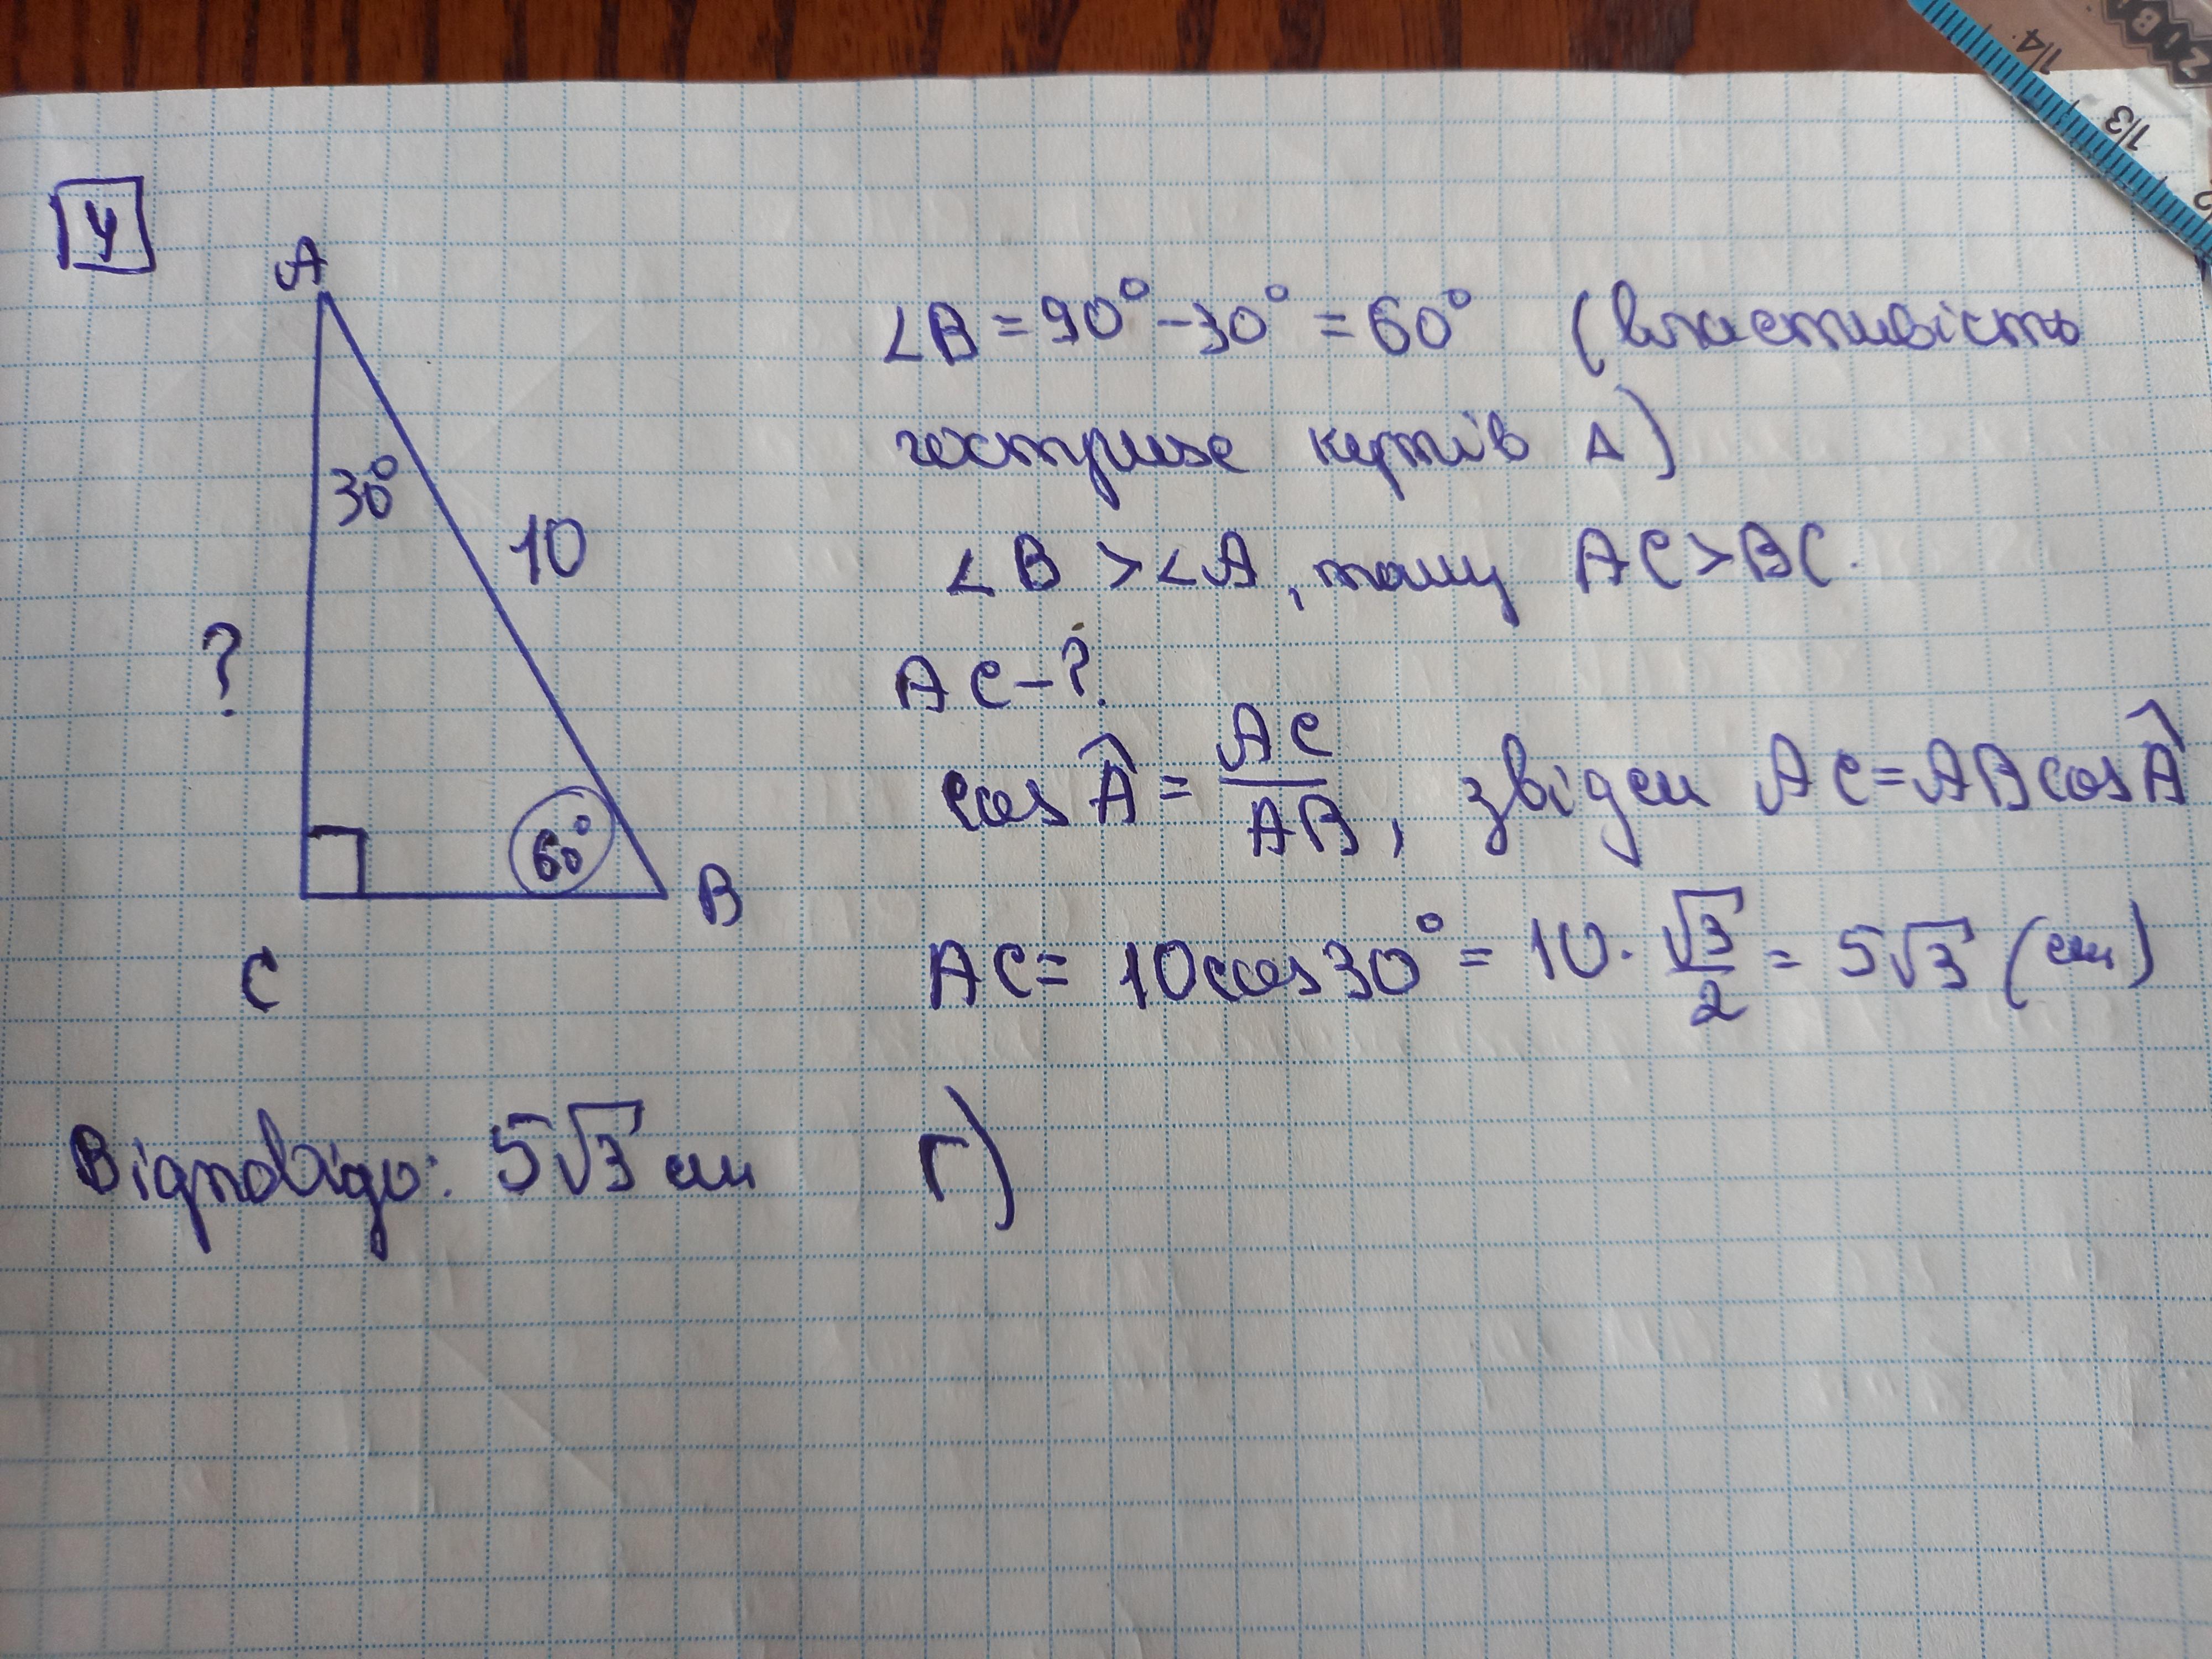 4
A
30°
10
?
60°
B
C
∠B = 90° - 30° = 60° (властивість
гострих кутів Δ)
∠B > ∠A, тому AC > BC.
AC - ?
cos Â = AC/AB, звідси AC = AB cos Â
AC = 10 cos 30° = 10 · √3/2 = 5√3 (см)
Відповідь: 5√3 см г)
1/4
1/3